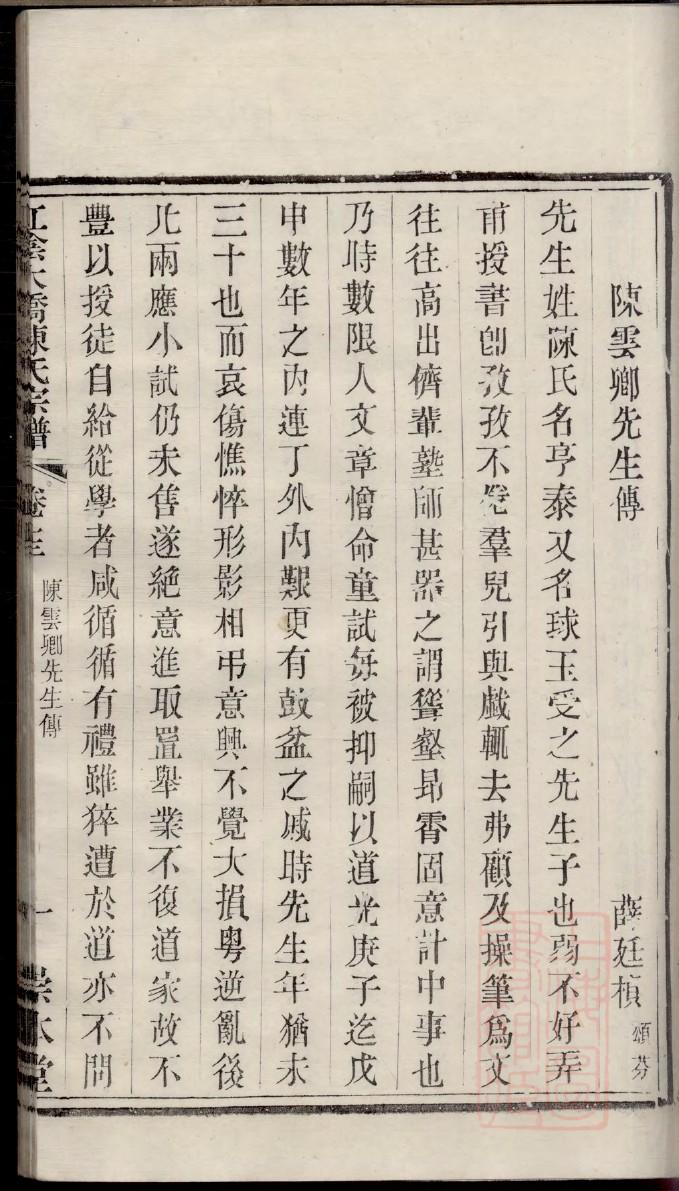 陳雲卿先生傳 薛廷楨 頌芬
先生姓陳氏名亨泰又名球玉受之先生子也弱不好弄
甫授書卽孜孜不倦羣兒引與戲輒去弗顧及操筆爲文
往往高出儕輩塾師甚器之謂聳壑昂霄固意計中事也
乃時數限人文章憎命童試每被抑嗣以道光庚子迄戊
申數年之內連丁外內艱更有鼓盆之戚時先生年猶未
三十也而哀傷憔悴形影相弔意興不覺大損粵逆亂後
凡兩應小試仍未售遂絕意進取置舉業不復道家故不
豐以授徒自給從學者咸循循有禮雖猝遭於道亦不問
江陰大橋陳氏宗譜 卷十三 陳雲卿先生傳 一 崇本堂